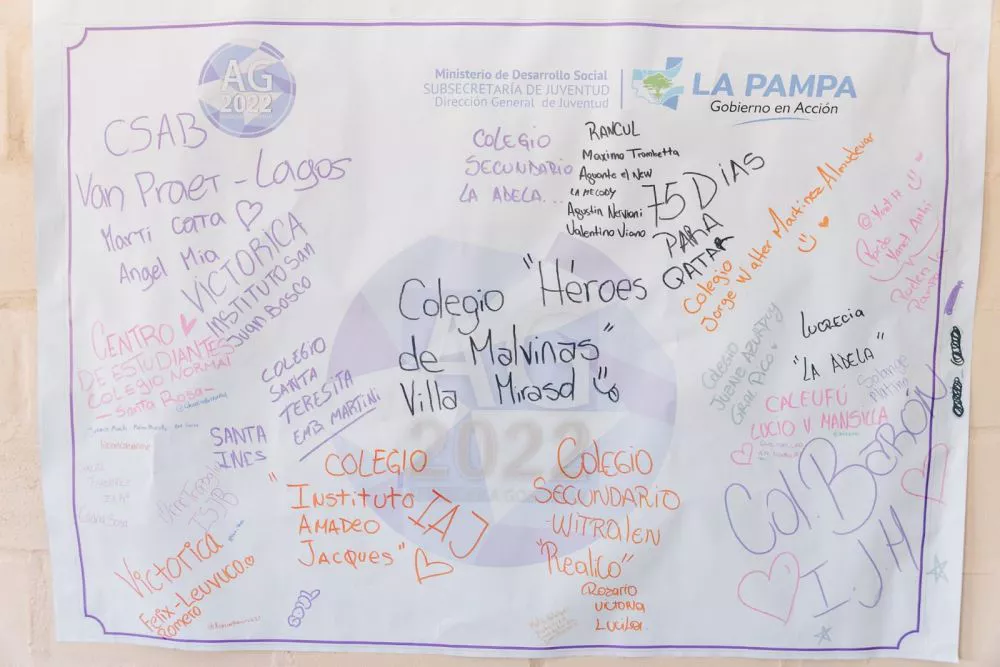 AG
2022
Ministerio de Desarrollo Social
SUBSECRETARÍA DE JUVENTUD
Dirección General de Juventud
LA PAMPA
Gobierno en Acción
CSAB
Van Praet - Lagos
Marti Cotta
Angel Mia
VICTORICA
INSTITUTO San
Juan Bosco
COLEGIO
SECUNDARIO
LA ADELA...
RANCUL
Maximo Trombetta
Aguante el New
LA MELODY
Agustin Nerviani
Valentino Viano
75 DIAS
PARA
QATAR
Colegio
Jorge Walter Martinez Almudevar
CENTRO
DE ESTUDIANTES
COLEGIO NORMAL
- Santa Rosa -
COLEGIO
SANTA
TERESITA
EMB. MARTINI
Colegio "Héroes
de Malvinas"
Villa Mirasol
COLEGIO
GRAL PICO
LUCRECIA
"LA ADELA"
Solange
CALEUFÚ
LUCIO V MANSILLA
SANTA
INES
AG
2022
COLEGIO
"Instituto
AMADEO
Jacques"
IAJ
COLEGIO
SECUNDARIO
-WITRALEN
"Realico"
Rozario
VICTORIA
Lucila
Col. BARÓN
I.J.M
ISJB
VICTORICA
Felix-Leuvuco
Romero